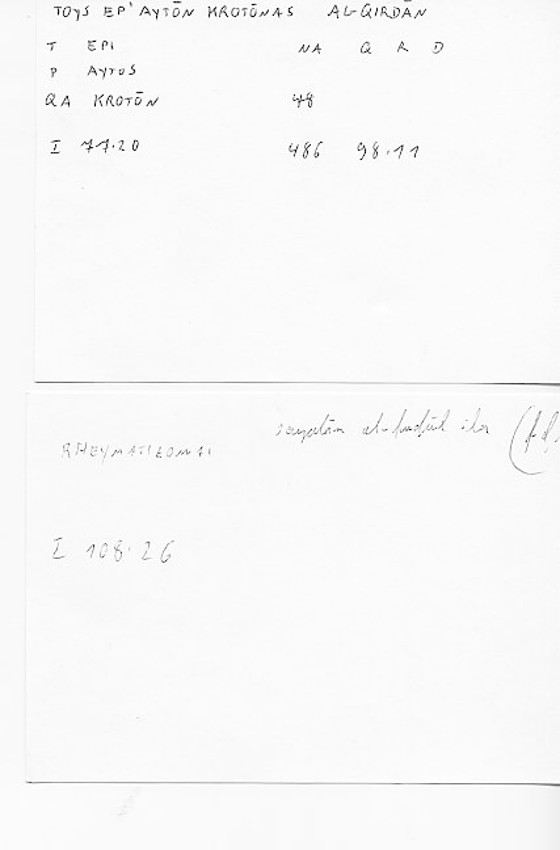 TOYS EP' AYTŌN KROTŌNAS AL-QIRDĀN
T EPI NA Q R D
P AYTOS
QA KROTŌN 48
I 77.20 486 98.11
al-
RHEYMATIZOMAI
I 108.26